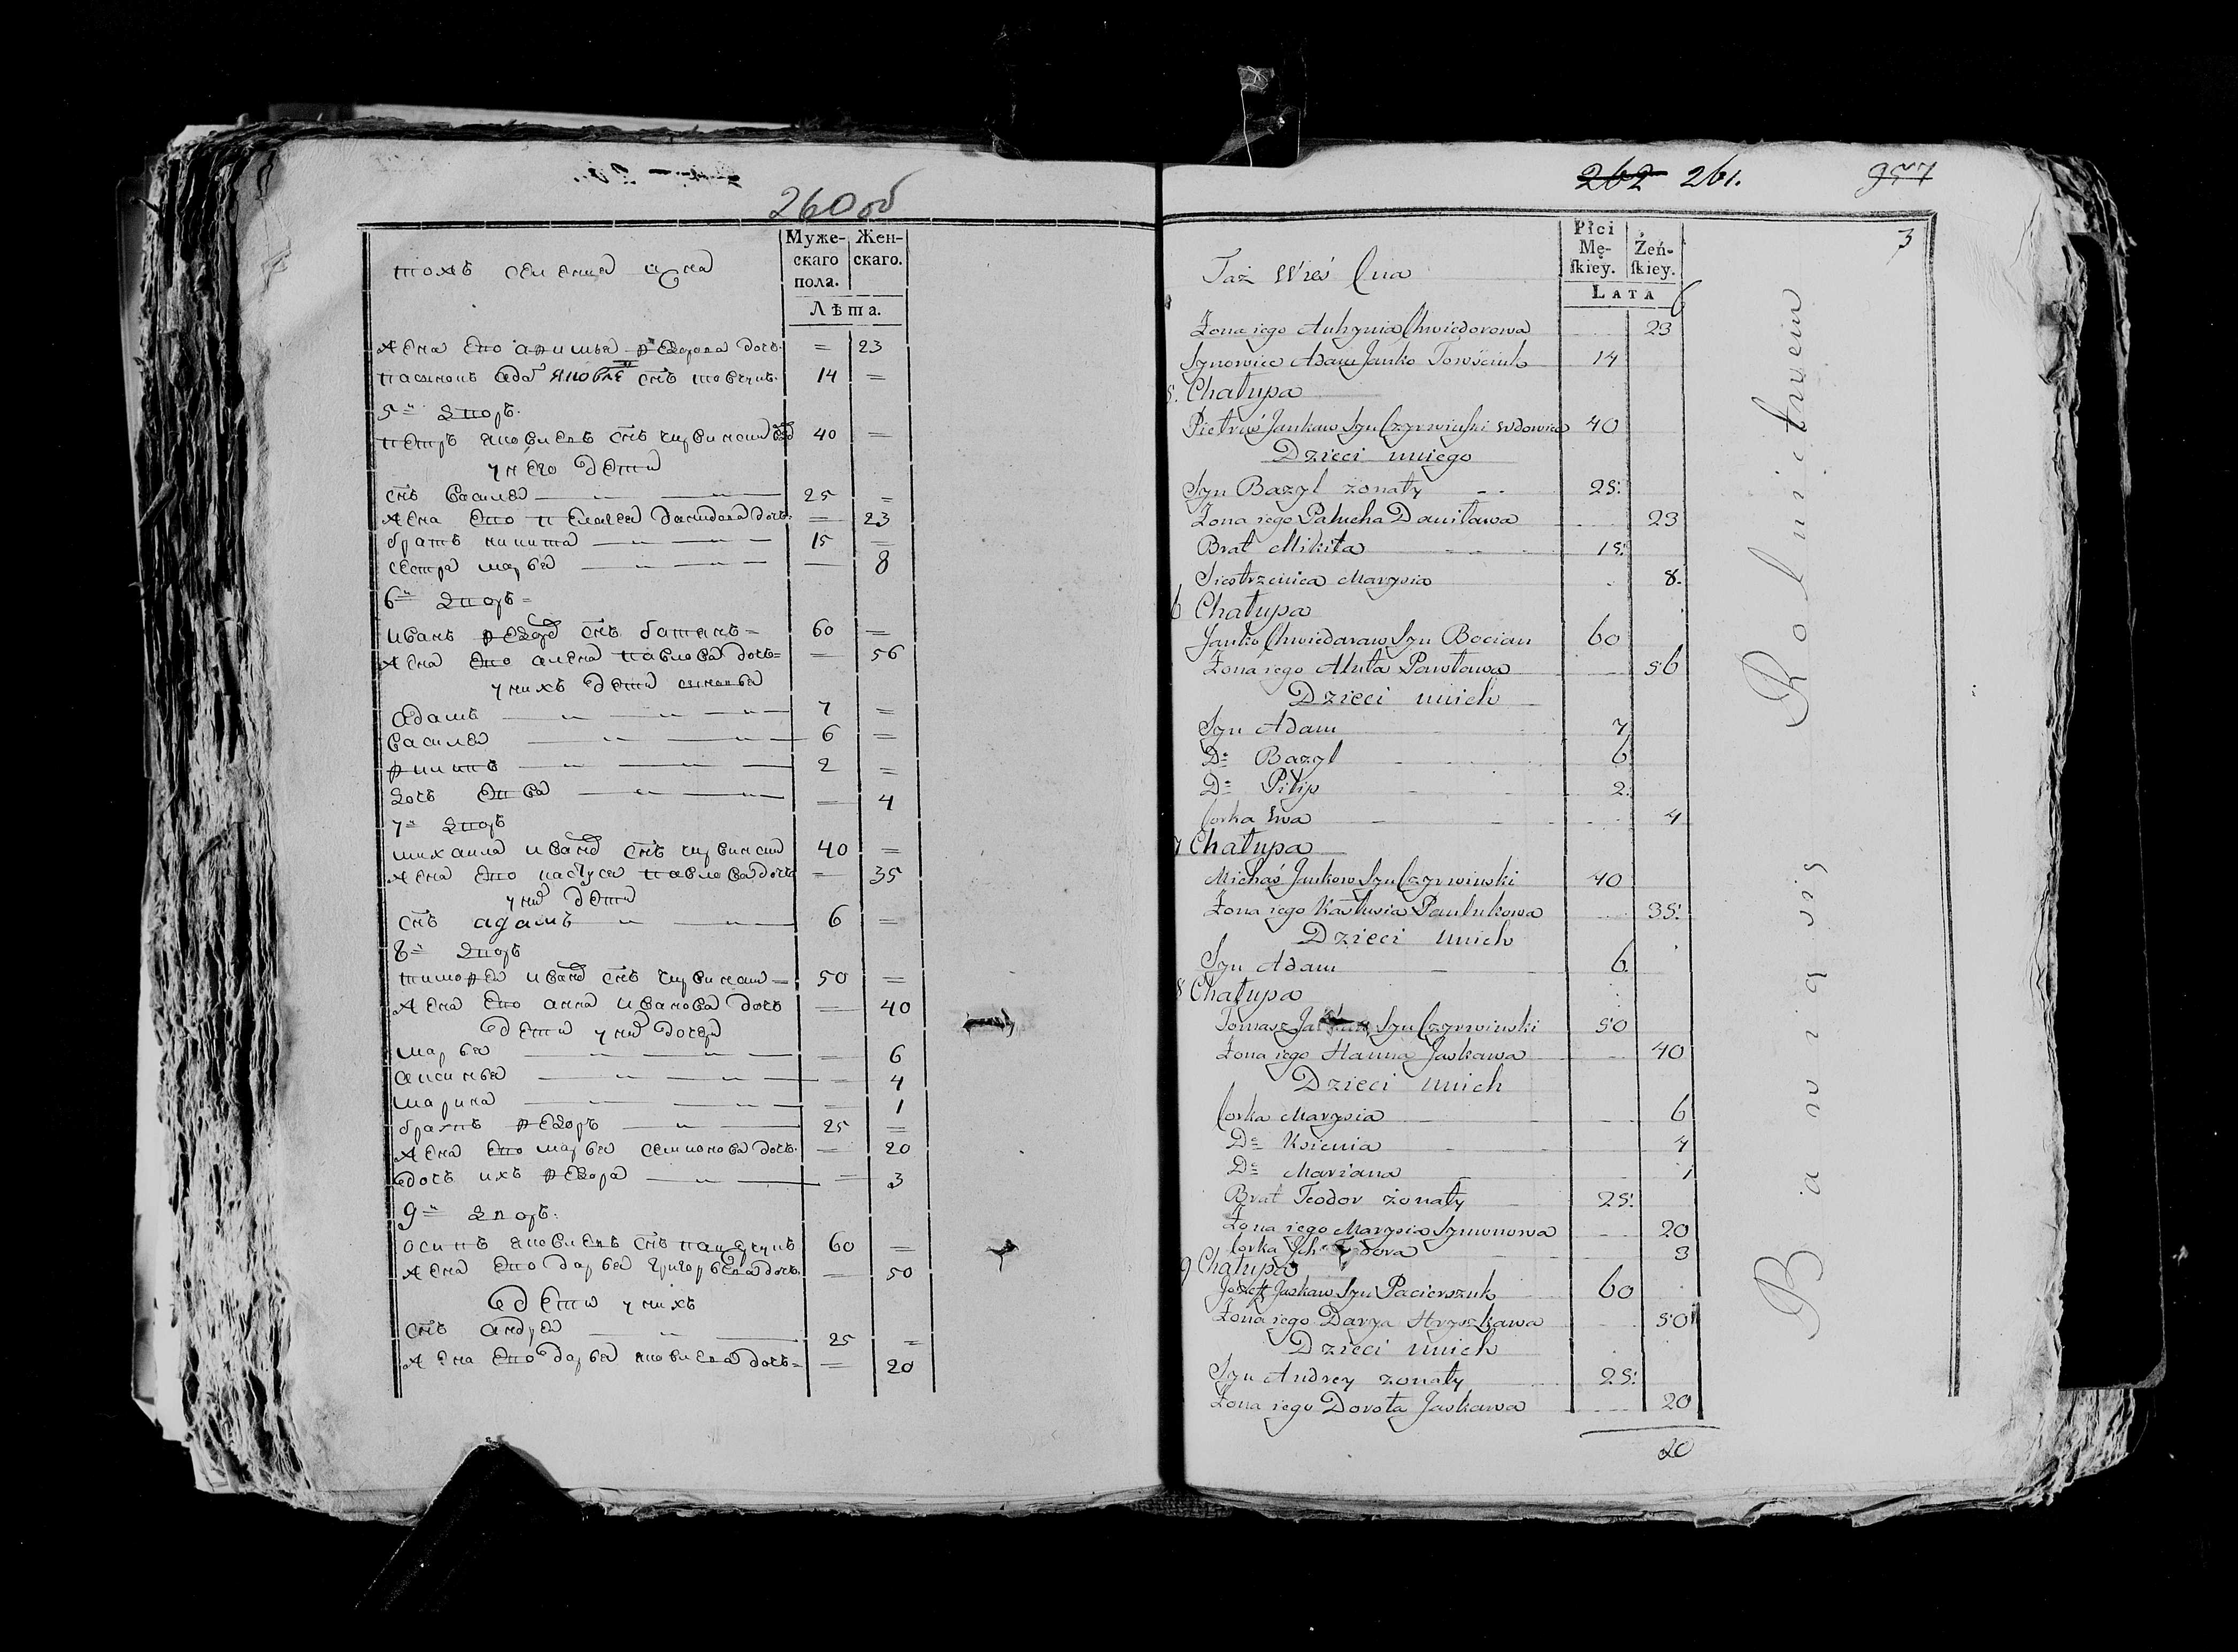 260 об
Муже-
скаго
пола.
Жен-
скаго.
Лѣта.
тожъ селеница цна
жена его аритья ѳедорова дочь. = 23
пасынокъ ада яковле снъ 14 =
5й дворъ.
петръ яковлевъ снъ чирвински 40 =
у него дети
снъ василей 25 =
жена его пелагея данилова дочь. — 23
братъ никита 15 =
сестра марья — 8
6й дворъ =
иванъ ѳедо снъ батянъ = 60 =
жена его алена павлова дочь = — 56
у нихъ дети сыновья
адамъ 7 =
василей 6 =
филипъ 2 =
дочь евва — 4
7й дворъ
михаила ивано снъ чирвински 40 =
жена его настуся павлова дочь — 35
у ни дети
снъ адамъ 6 =
8й дворъ
тимофей ивано снъ чирвински = 50 =
жена его анна иванова дочь — 40
дети у ни дочери
марья — 6
аксинья — 4
марина — 1
братъ ѳедоръ 25 =
жена его марья семионова дочь. — 20
дочь ихъ ѳедора — 3
9й дворъ.
осипъ яковлевъ снъ 60 =
жена его дарья григорьева дочь. — 50
дети у нихъ
снъ андрей 25 =
жена его дарья яковлева дочь = — 20
262 261. 957
3
Płci
Mę-
skiey.
Żeń-
skiey.
Lata
Taż Wieś Cna
Żona iego Auhynia Chwiedorowa 23
Synowiec Adam Janko Towścink 14
5. Chałupa
Pietruś Jankaw Syn Czyrwinski wdowiec 40
Dzieci uniego
Syn Bazyl żonaty 25.
Żona iego Palucha Daniława 23
Brat Mikita 15.
Siestrzenica Marysia 8.
6 Chałupa
Janko Chwiedaraw Syn Bocian 60
Żona iego Aluta Pawława 56
Dzieci unich
Syn Adam 7
Do Bazyl 6
Do Pilip 2.
Corka Ewa 4
7 Chałupa
Michaś Jankow Syn Czyrwinski 40
Żona iego Nastusia Paulukowa 35.
Dzieci unich
Syn Adam 6.
8 Chałupa
Tomasz Syn Czyrwinski 50
Żona iego Hanna Jaskawa 40
Dzieci unich
Corka Marysia 6
Do Ksienia 4
Do Mariana 1
Brat Teodor żonaty 25.
Żona iego Marysia Symonowa 20
Corka Ich Teodora 3
9 Chałupa
Jozef Jaskaw Syn Pacierszuk 60
Żona iego Darya Hryszkawa 50
Dzieci unich
Syn Andrey żonaty 25.
Żona iego Dorota Jaskawa 20
20
Bawią się Rolnictwem